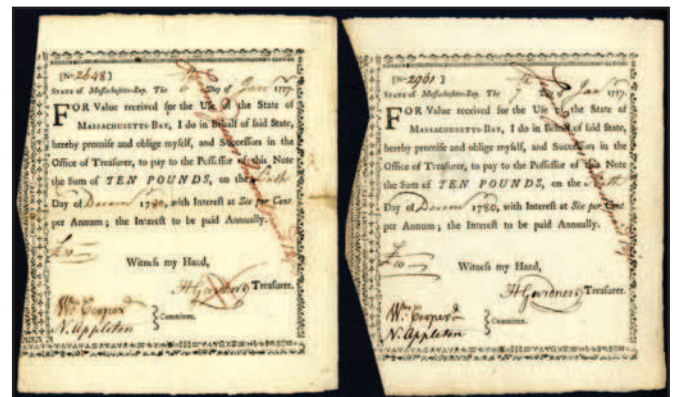 [No. 2648]
STATE of Massachusetts-Bay. The 6 Day of Jan 1777.
FOR Value received for the Use of the State of
MASSACHUSETTS-BAY, I do in Behalf of said State,
hereby promise and oblige myself, and Successors in the
Office of Treasurer, to pay to the Possessor of this Note
the Sum of TEN POUNDS, on the Sixth
Day of 1780, with Interest at Six per Cent
per Annum; the Interest to be paid Annually.
£10
Witness my Hand,
HGardner Treasurer.
Wm Cooper
N. Appleton
Committee.
[No. 2961]
STATE of Massachusetts-Bay. The 7 Day of Jan 1777.
FOR Value received for the Use of the State of
MASSACHUSETTS-BAY, I do in Behalf of said State,
hereby promise and oblige myself, and Successors in the
Office of Treasurer, to pay to the Possessor of this Note
the Sum of TEN POUNDS, on the
Day of 1780, with Interest at Six per Cent
per Annum; the Interest to be paid Annually.
£10
Witness my Hand,
HGardner Treasurer.
Wm Cooper
N. Appleton
Committee.